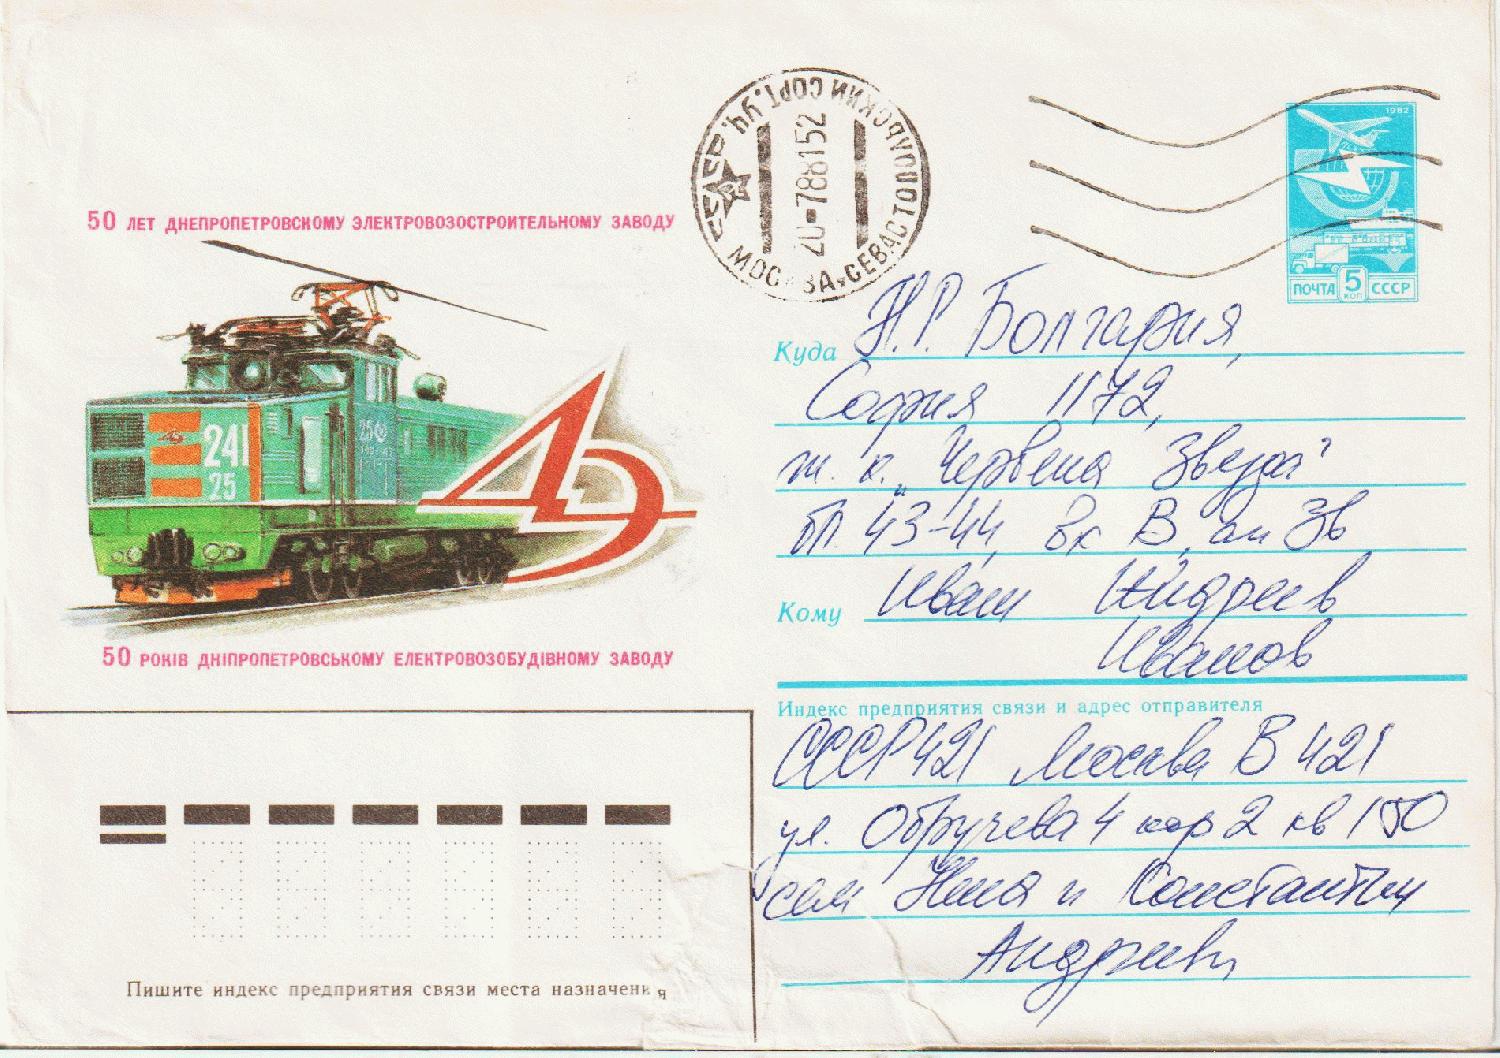 50 ЛЕТ ДНЕПРОПЕТРОВСКОМУ ЭЛЕКТРОВОЗОСТРОИТЕЛЬНОМУ ЗАВОДУ
241
25
ДЭ
50 РОКІВ ДНІПРОПЕТРОВСЬКОМУ ЕЛЕКТРОВОЗОБУДІВНОМУ ЗАВОДУ
СССР
МОСКВА СЕВАСТОПОЛЬСКИЙ СОРТ. УЧ.
20-7881152
1982
ПОЧТА 5 КОП СССР
Куда Н.Р. Болгария,
София 1172,
ж. к. "Червена Звезда"
бл 43-44, вх В, ап 3в
Кому Иван Андреев
Иванов
Индекс предприятия связи и адрес отправителя
СССР 421 Москва В 421
ул. Обручева 4 кор 2 кв 150
сем Нина и Константин
Андрееви
Пишите индекс предприятия связи места назначения